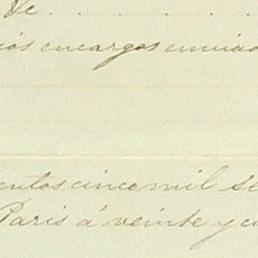 de . . . .
ios encargos enviado
entos cinco mil se
Paris á veinte y c